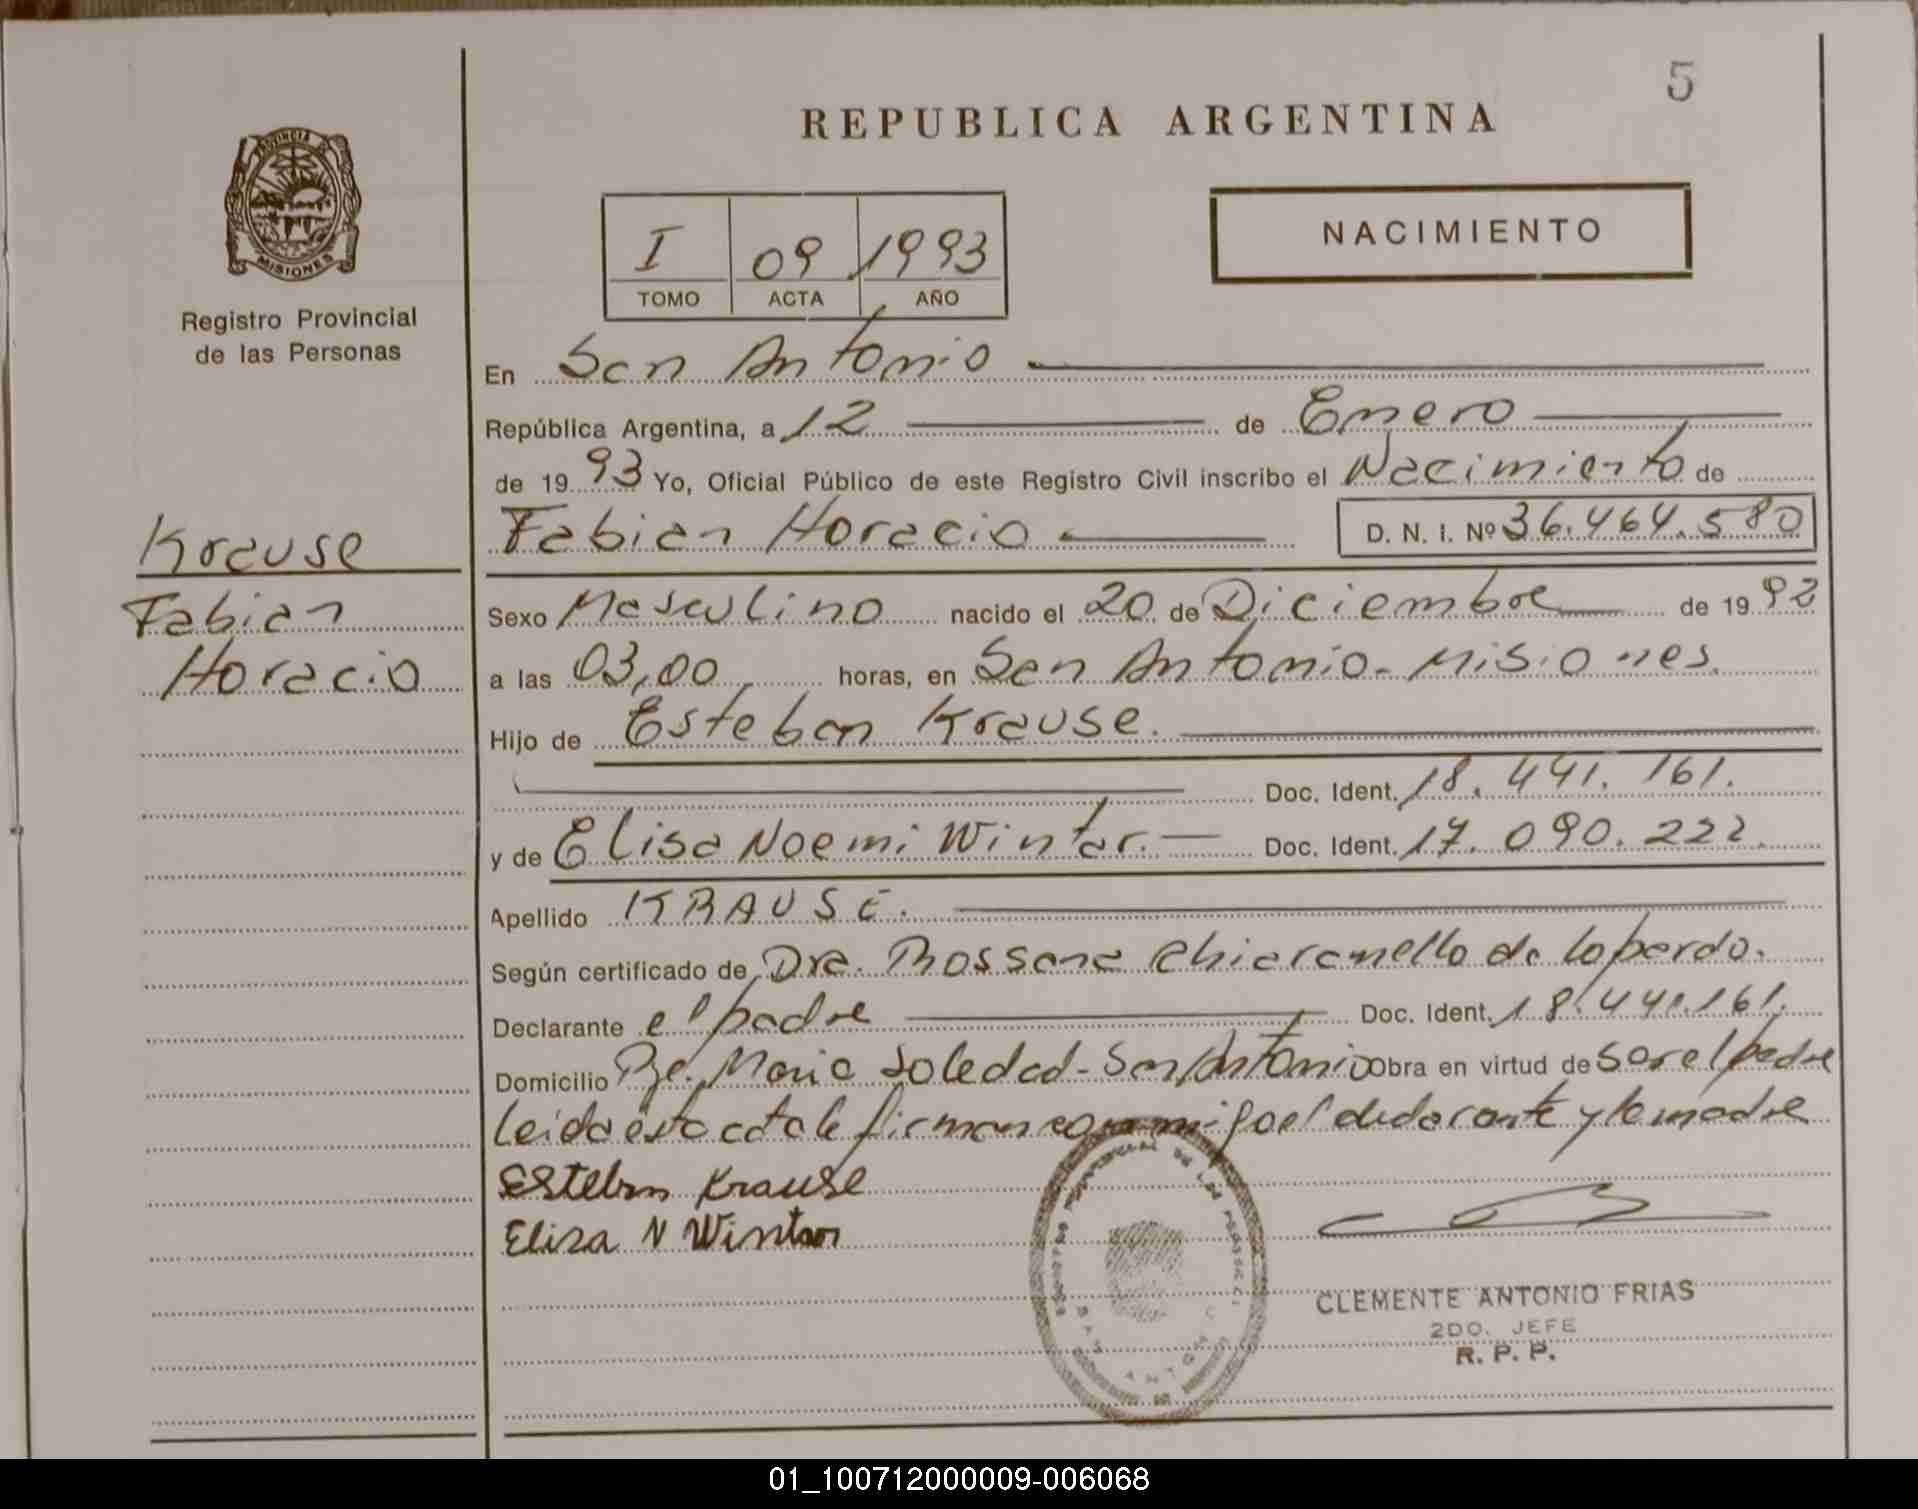 5
REPUBLICA ARGENTINA
PROVINCIA DE
MISIONES
Registro Provincial
de las Personas
I 09 1993
TOMO ACTA AÑO
NACIMIENTO
En San Antonio
República Argentina, a 12 de Enero
de 1993 Yo, Oficial Público de este Registro Civil inscribo el Nacimiento de
Fabian Horacio D. N. I. Nº 36.464.580
Krause
Fabian
Horacio
Sexo Masculino nacido el 20 de Diciembre de 1992
a las 03,00 horas, en San Antonio - Misiones.
Hijo de Esteban Krause.
Doc. Ident. 18.441.161.
y de Elisa Noemi Winter. Doc. Ident. 17.090.222.
Apellido KRAUSE.
Según certificado de Dra. Rossana Chiaramello de Lopardo.
Declarante el padre Doc. Ident. 18.441.161.
Domicilio Pje. Maria Soledad - San Antonio Obra en virtud de ser el padre
leida esta acta la firman conmigo el declarante y la madre
Esteban Krause
Elisa N Winter
SAN ANTONIO
CLEMENTE ANTONIO FRIAS
2DO. JEFE
R. P. P.
01_100712000009-006068